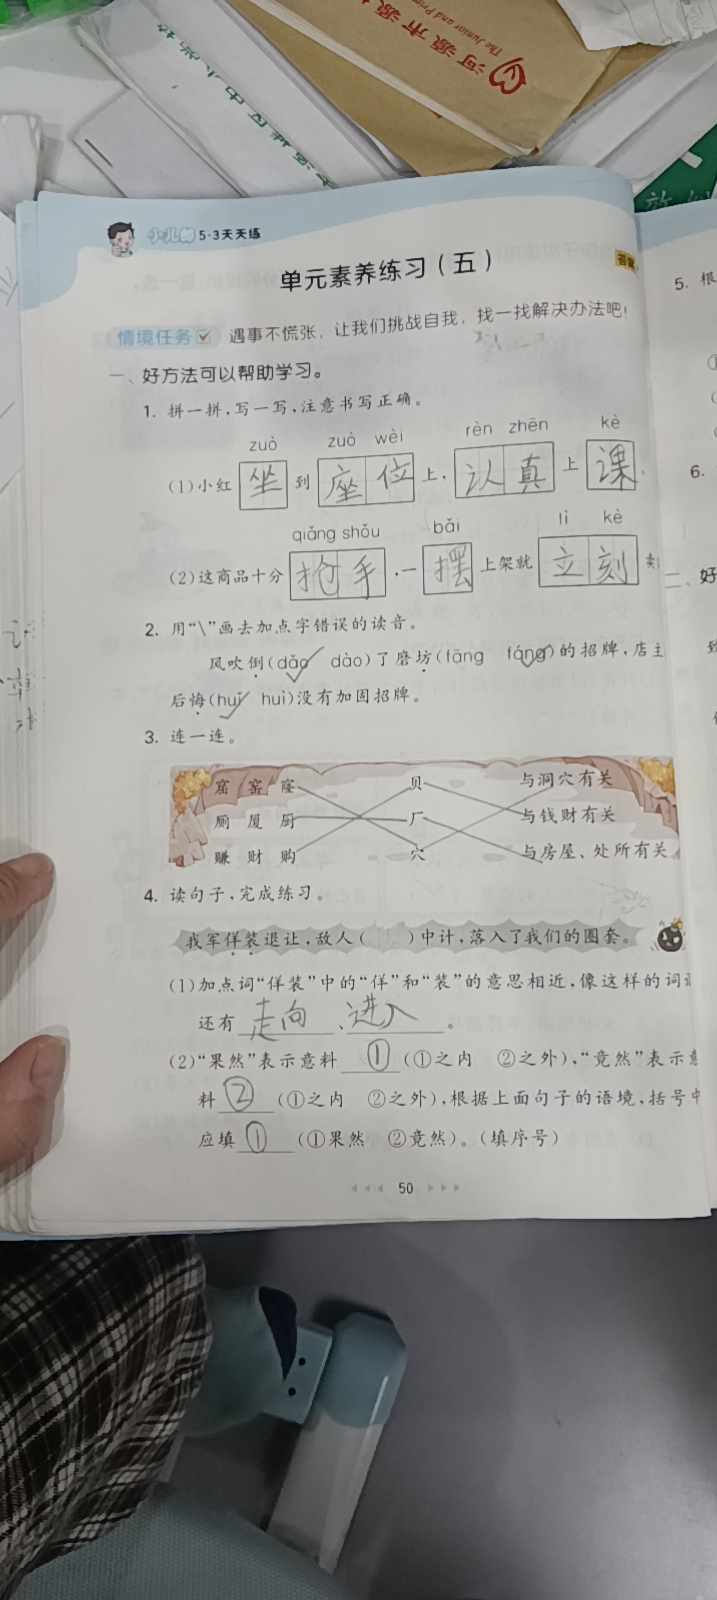 河源市源
The Junior and Prim
小儿郎 5·3天天练
单元素养练习（五）
答案
情境任务 遇事不慌张，让我们挑战自我，找一找解决办法吧！
一、好方法可以帮助学习。
1. 拼一拼，写一写，注意书写正确。
zuò zuò wèi rèn zhēn kè
(1)小红 坐 到 座位 上，认真 上 课。
qiǎng shǒu bǎi lì kè
(2)这商品十分 抢手，一 摆 上架就 立刻 卖
2. 用“\”画去加点字错误的读音。
风吹倒(dǎo dào)了磨坊(fāng fáng)的招牌，店主
后悔(huǐ huì)没有加固招牌。
3. 连一连。
窟 窑 窿 贝 与洞穴有关
厕 厦 厨 厂 与钱财有关
赚 财 购 穴 与房屋、处所有关
4. 读句子，完成练习。
我军佯装退让，敌人（ ）中计，落入了我们的圈套。
(1)加点词“佯装”中的“佯”和“装”的意思相近，像这样的词语
还有 走向 、 进入 。
(2)“果然”表示意料 ① (①之内 ②之外)，“竟然”表示意
料 ② (①之内 ②之外)，根据上面句子的语境，括号中
应填 ① (①果然 ②竟然)。(填序号)
50
5. 根
6.
二、好